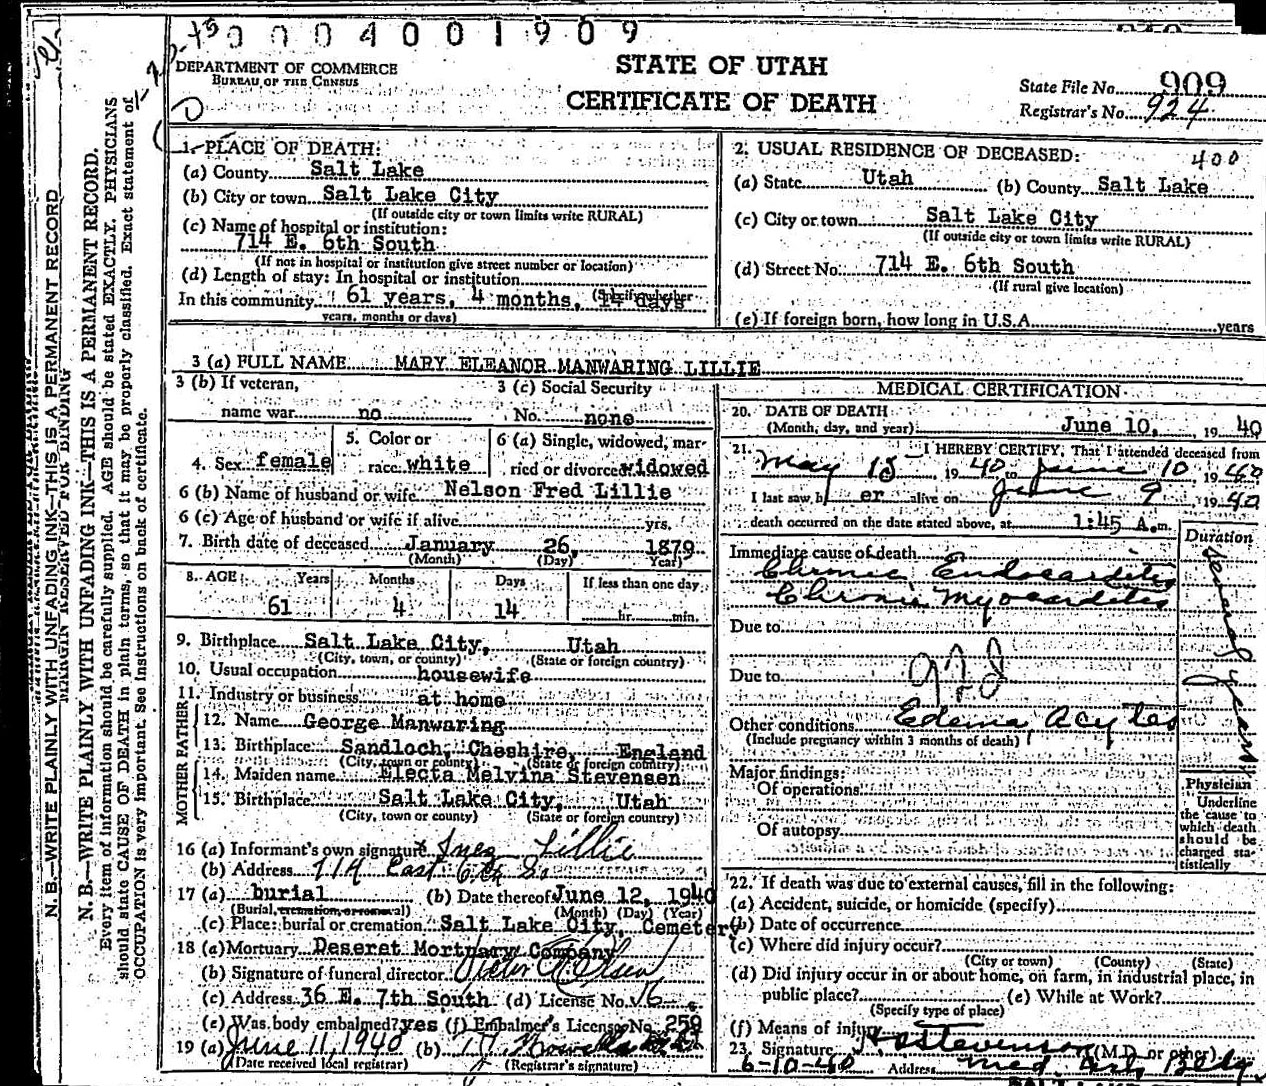 0004001909
DEPARTMENT OF COMMERCE
BUREAU OF THE CENSUS
STATE OF UTAH
CERTIFICATE OF DEATH
State File No. 909
Registrar's No. 924
1. PLACE OF DEATH:
(a) County Salt Lake
(b) City or town Salt Lake City
(If outside city or town limits write RURAL)
(c) Name of hospital or institution:
714 E. 6th South
(If not in hospital or institution give street number or location)
(d) Length of stay: In hospital or institution
In this community 61 years, 4 months, 14 days (Specify whether
years, months or days)
2. USUAL RESIDENCE OF DECEASED: 400
(a) State Utah (b) County Salt Lake
(c) City or town Salt Lake City
(If outside city or town limits write RURAL)
(d) Street No. 714 E. 6th South
(If rural give location)
(e) If foreign born, how long in U.S.A. years
3 (a) FULL NAME MARY ELEANOR MANWARING LILLIE
3 (b) If veteran,
name war no
3 (c) Social Security
No. none
4. Sex female
5. Color or
race white
6 (a) Single, widowed, mar-
ried or divorced widowed
6 (b) Name of husband or wife Nelson Fred Lillie
6 (c) Age of husband or wife if alive yrs.
7. Birth date of deceased January 26, 1879
(Month) (Day) Year)
8. AGE: Years Months Days If less than one day
61 4 14 hr. min.
9. Birthplace Salt Lake City, Utah
(City, town, or county) (State or foreign country)
10. Usual occupation housewife
11. Industry or business at home
FATHER
12. Name George Manwaring
13. Birthplace Sandloch, Cheshire, England
(City, town or county) (State or foreign country)
MOTHER
14. Maiden name Electa Melvina Stevensen
15. Birthplace Salt Lake City, Utah
(City, town or county) (State or foreign country)
16 (a) Informant's own signature Inez Lillie
(b) Address 714 East 6th So
17 (a) burial (b) Date thereof June 12, 1940
(Burial, cremation, or removal) (Month) (Day) (Year)
(c) Place: burial or cremation Salt Lake City, Cemetery
18 (a) Mortuary Deseret Mortuary Company
(b) Signature of funeral director
(c) Address 36 E. 7th South (d) License No. 16
(e) Was body embalmed? yes (f) Embalmer's License No. 259
19 (a) June 11, 1940 (b)
(Date received local registrar) (Registrar's signature)
MEDICAL CERTIFICATION
20. DATE OF DEATH
(Month, day, and year) June 10, 1940
21. I HEREBY CERTIFY, That I attended deceased from
May 15 1940 to June 10, 1940
I last saw h er alive on June 9 1940
death occurred on the date stated above, at 1:45 A.m.
Duration
Immediate cause of death
Chronic Endocarditis
Chronic Myocarditis
Several years
Due to
Due to
Other conditions Edema, Acytes
(Include pregnancy within 3 months of death)
Major findings:
Of operations
Of autopsy
Physician
Underline
the cause to
which death
should be
charged sta-
tistically
22. If death was due to external causes, fill in the following:
(a) Accident, suicide, or homicide (specify)
(b) Date of occurrence
(c) Where did injury occur?
(City or town) (County) (State)
(d) Did injury occur in or about home, on farm, in industrial place, in
public place? (e) While at Work?
(Specify type of place)
(f) Means of injury
23. Signature Stevenson (M.D. or other)
6-10-40 Address Med. Arts Bldg
N. B.—WRITE PLAINLY WITH UNFADING INK—THIS IS A PERMANENT RECORD
MARGIN RESERVED FOR BINDING
N. B.—WRITE PLAINLY WITH UNFADING INK—THIS IS A PERMANENT RECORD.
Every item of information should be carefully supplied. AGE should be stated EXACTLY. PHYSICIANS
should state CAUSE OF DEATH in plain terms, so that it may be properly classified. Exact statement of
OCCUPATION is very important. See instructions on back of certificate.